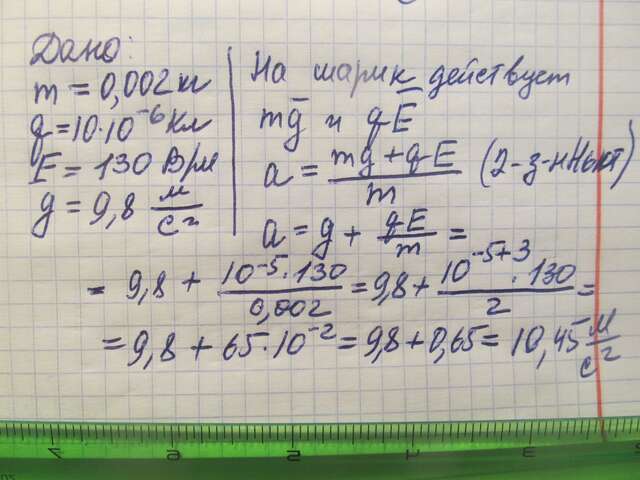 Дано:
m = 0,002 кг
q = 10·10⁻⁶ Кл
E = 130 В/м
g = 9,8 м/с²
На шарик действует
mg̅ и qE̅
a = (mg + qE)/m (2-з-н Ньют)
a = g + qE/m =
= 9,8 + (10⁻⁵·130)/0,002 = 9,8 + (10⁻⁵⁺³·130)/2 =
= 9,8 + 65·10⁻² = 9,8 + 0,65 = 10,45 м/с²